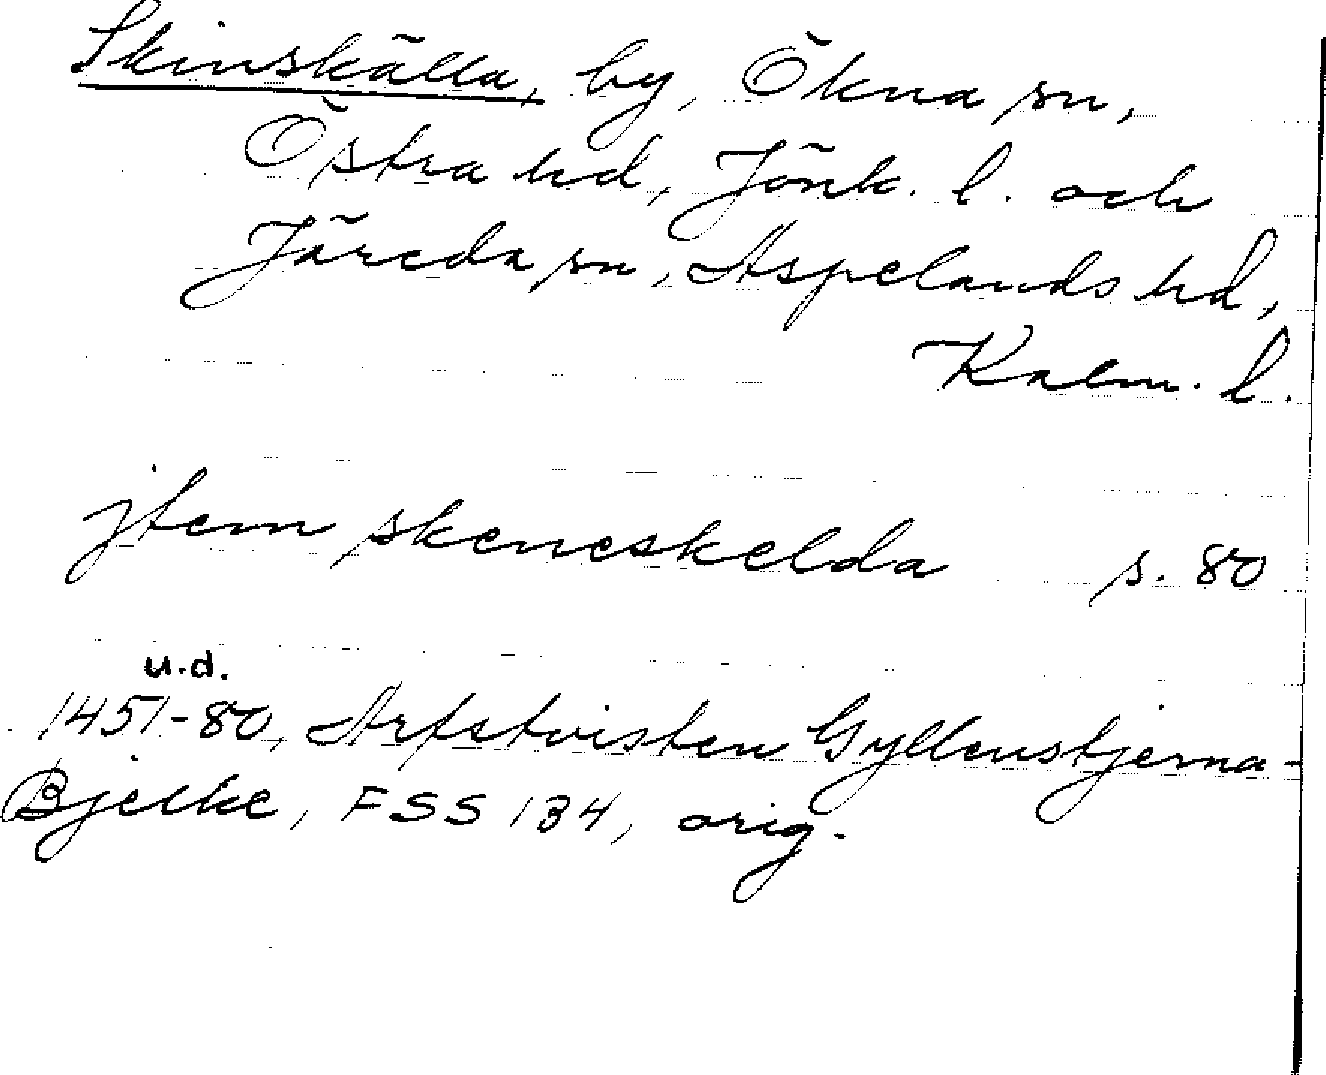 Skinskälla, by, Ökna sn,
Östra hd, Jönk. l. och
Järeda sn, Aspelands hd,
Kalm. l.
jtem skeneskelda s. 80
u.d.
1451-80, Arfstvisten Gyllenstjerna-
Bjelke, FSS 134, orig.